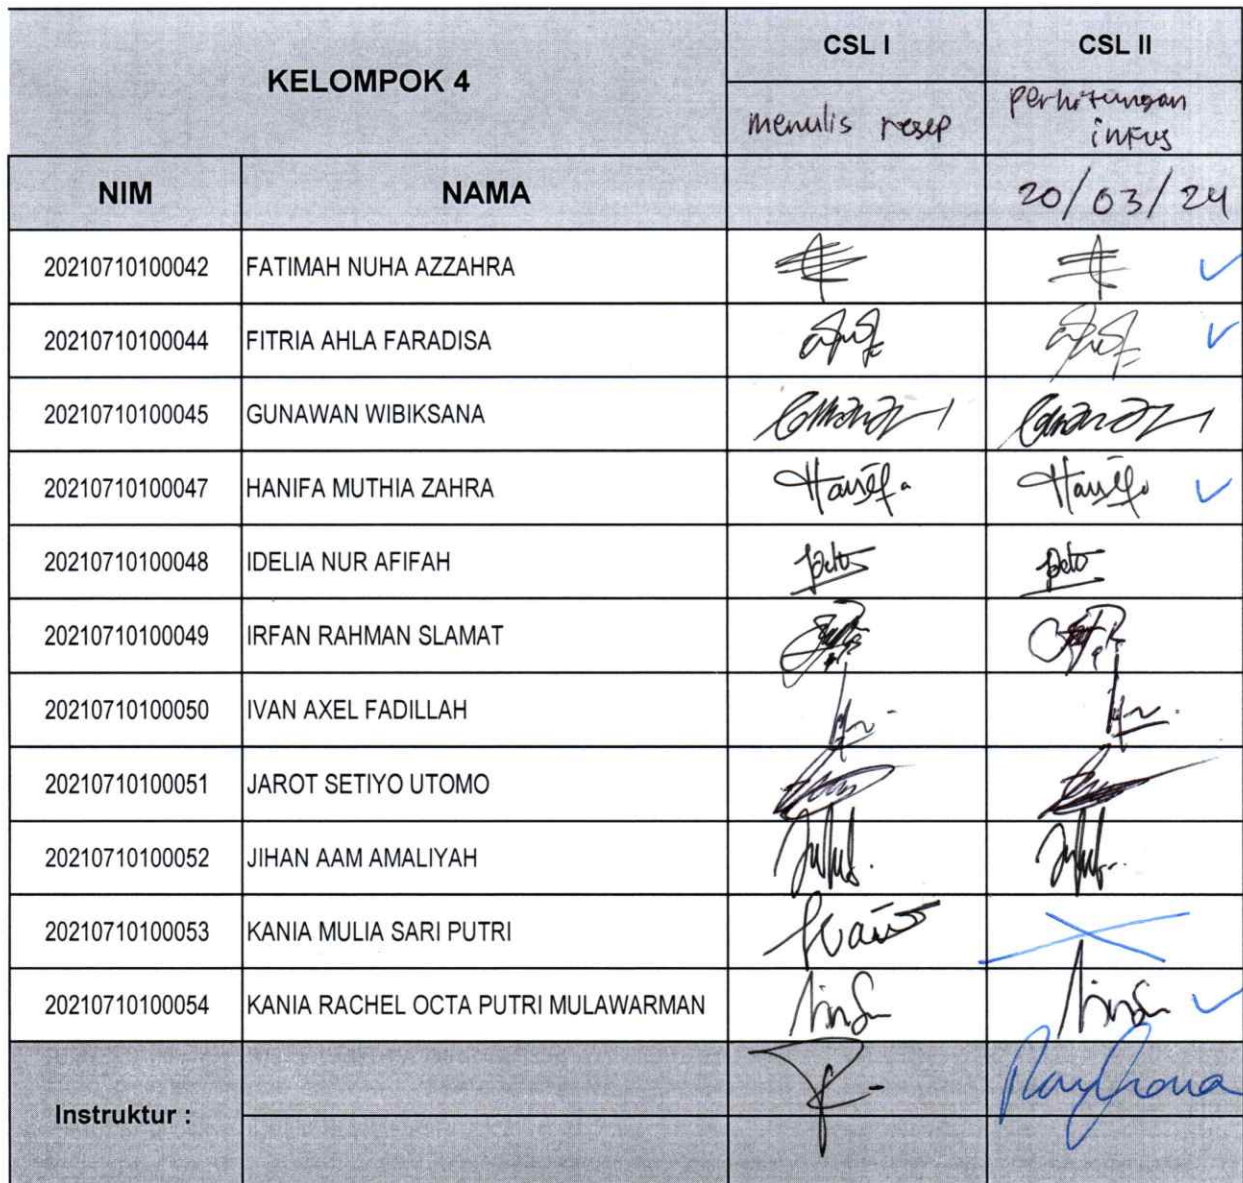 KELOMPOK 4
CSL I
CSL II
menulis resep
perhitungan
infus
NIM
NAMA
20/03/24
20210710100042 FATIMAH NUHA AZZAHRA
20210710100044 FITRIA AHLA FARADISA
20210710100045 GUNAWAN WIBIKSANA
20210710100047 HANIFA MUTHIA ZAHRA
20210710100048 IDELIA NUR AFIFAH
20210710100049 IRFAN RAHMAN SLAMAT
20210710100050 IVAN AXEL FADILLAH
20210710100051 JAROT SETIYO UTOMO
20210710100052 JIHAN AAM AMALIYAH
20210710100053 KANIA MULIA SARI PUTRI
20210710100054 KANIA RACHEL OCTA PUTRI MULAWARMAN
Instruktur :